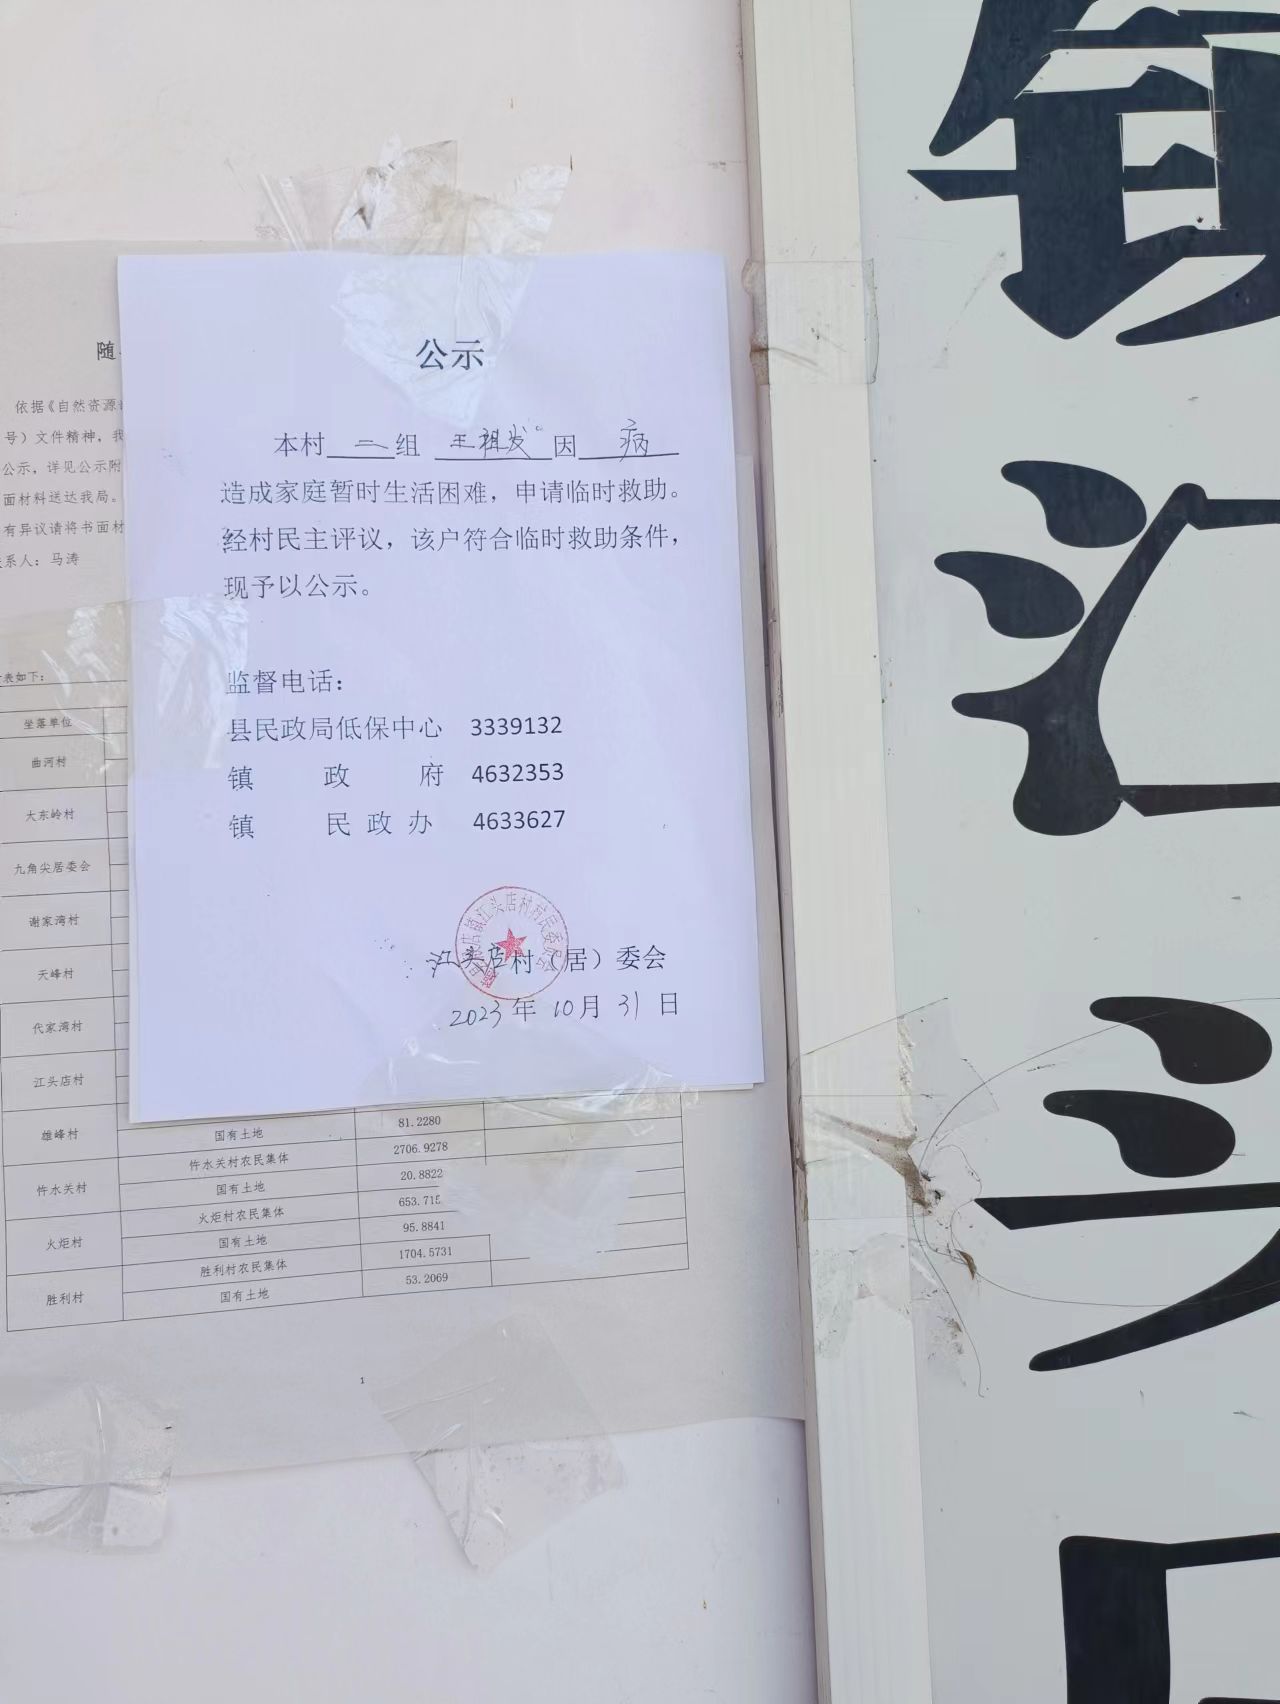 公示
本村二组 王祖发 因 病
造成家庭暂时生活困难，申请临时救助。
经村民主评议，该户符合临时救助条件，
现予以公示。
监督电话：
县民政局低保中心 3339132
镇 政 府 4632353
镇 民 政 办 4633627
江头店村（居）委会
2023年10月31日
店镇江头店村村民委员会
随
依据《自然资源
号）文件精神，我
公示，详见公示附
面材料送达我局。
有异议请将书面材
系人：马涛
表如下：
坐落单位
曲河村
大东岭村
九角尖居委会
谢家湾村
天峰村
代家湾村
江头店村
雄峰村 国有土地 81.2280
忤水关村农民集体 2706.9278
忤水关村 国有土地 20.8822
火炬村农民集体 653.715
火炬村 国有土地 95.8841
胜利村农民集体 1704.5731
胜利村 国有土地 53.2069
1
江
头